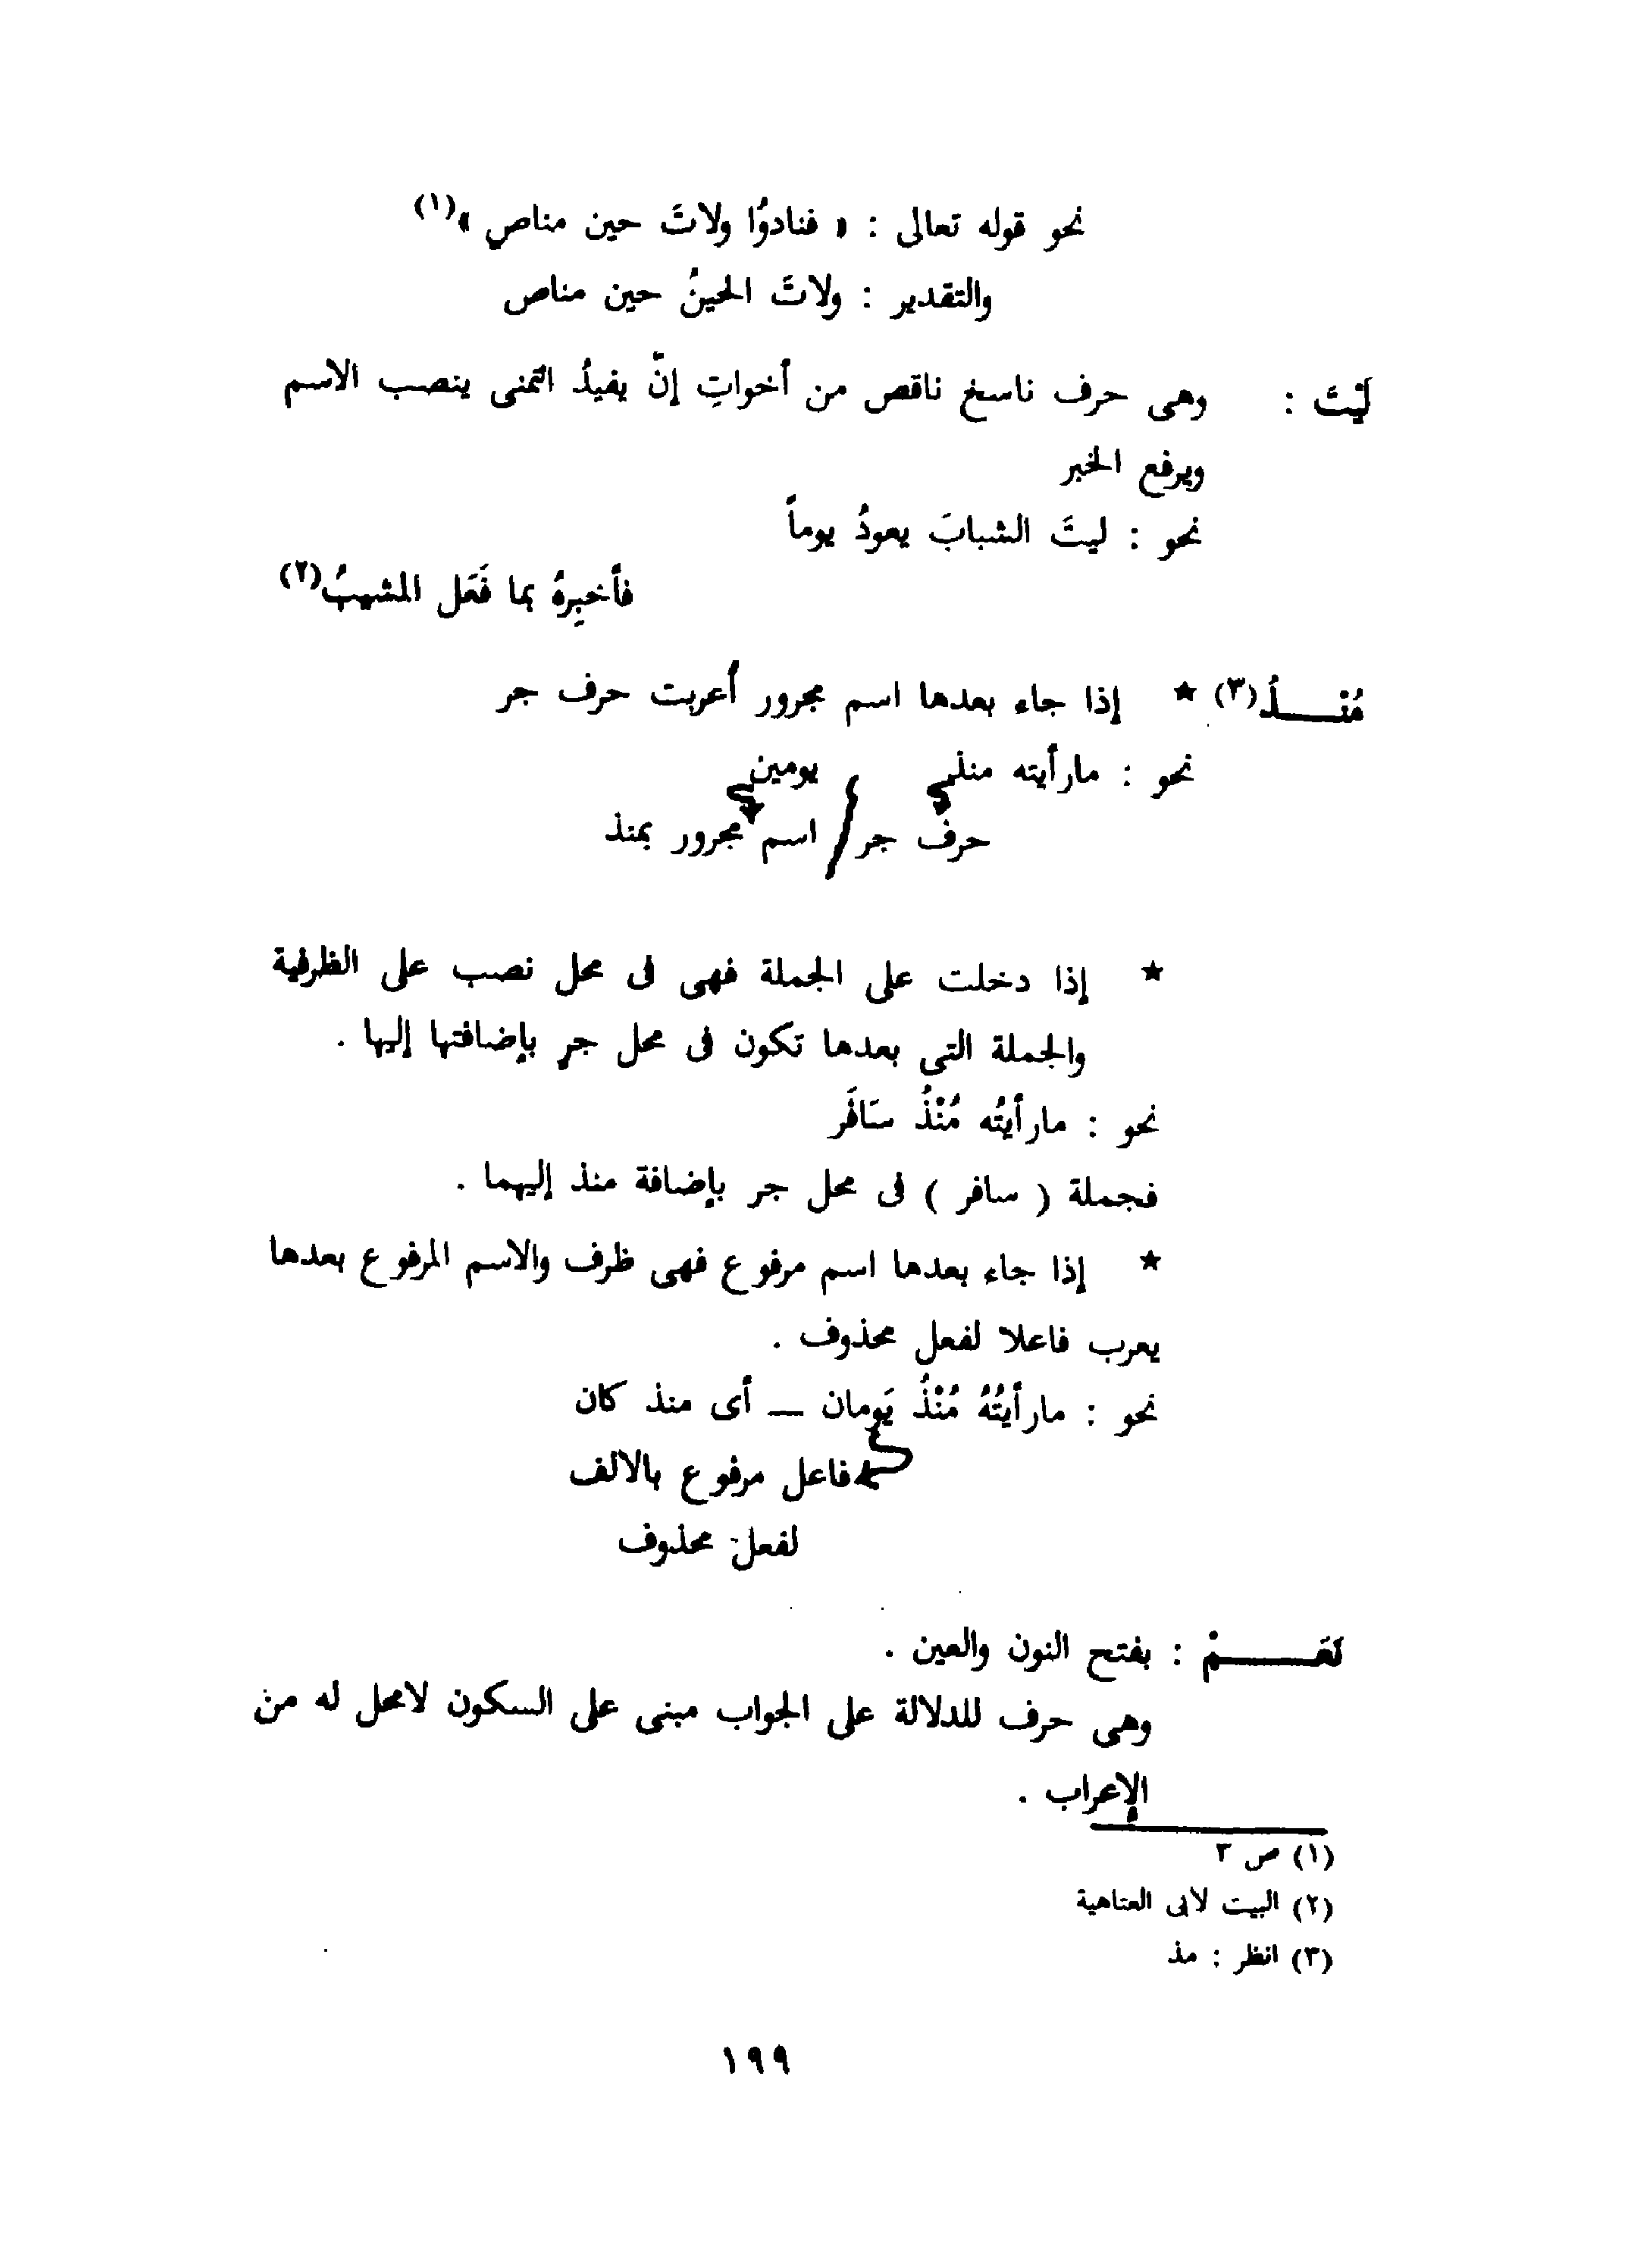 نحو قوله تعالى : « فنادوُا ولاتَ حين مناصٍ »(١)
والتقدير : ولاتَ الحينُ حين مناص
لَيْتَ : وهى حرف ناسخ ناقص من أخواتِ إنّ يفيدُ التمنى ينصب الاسم
ويرفع الخبر
نحو : ليتَ الشبابَ يعودُ يوماً
فأخبِرهُ بما فَعَل المشيبُ(٢)
مُنْـــذُ(٣) ★ إذا جاء بعدها اسم مجرور أعربت حرف جر
نحو : مارأيته منذ يومين
حرف جر / اسم مجرور بمنذ
★ إذا دخلت على الجملة فهى فى محل نصب على الظرفية
والجملة التى بعدها تكون فى محل جرٍ بإضافتها إليها .
نحو : مارأيتُه مُنْذُ سَافَر
فجملة ( سافر ) فى محل جر بإضافة منذ إليهما .
★ إذا جاء بعدها اسم مرفوع فهى ظرف والاسم المرفوع بعدها
يعرب فاعلا لفعل محذوف .
نحو : مارأيتُهُ مُنْذُ يَومان — أى منذ كان
فاعل مرفوع بالالف
لفعل محذوف
نَعَـــــمْ : بفتح النون والعين .
وهى حرف للدلالة على الجواب مبنى على السكون لامحل له من
الإعراب .
(١) ص ٣
(٢) البيت لابى العتاهية
(٣) انظر : مذ
١٩٩